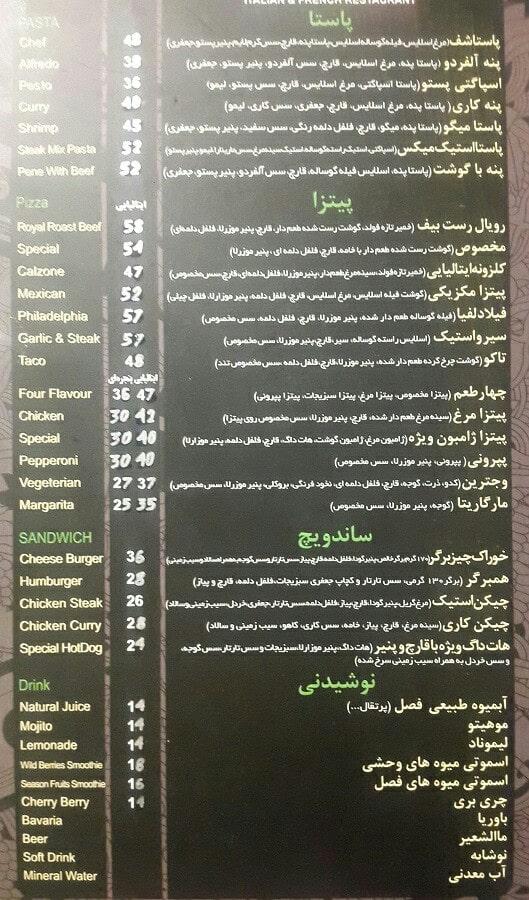 ITALIAN & FRENCH RESTAURANT
PASTA پاستا
Chef 48 پاستاشف (مرغ اسلایس، فیله گوساله اسلایس، پاستا پنه، قارچ، سس کرم لایم، پنیر پستو، جعفری)
Alfredo 38 پنه آلفردو (پاستا پنه، مرغ اسلایس، قارچ، سس آلفردو، پنیر پستو، جعفری)
Pesto 36 اسپاگتی پستو (پاستا اسپاگتی، مرغ اسلایس، قارچ، سس پستو، لیمو)
Curry 40 پنه کاری (پاستا پنه، مرغ اسلایس، قارچ، جعفری، سس کاری، لیمو)
Shrimp 45 پاستا میگو (پاستا پنه، میگو، قارچ، فلفل دلمه رنگی، سس سفید، پنیر پستو، جعفری)
Steak Mix Pasta 52 پاستا استیک میکس
Pene With Beef 52 پنه با گوشت (پاستا پنه، اسلایس فیله گوساله، قارچ، سس آلفردو، پنیر پستو، جعفری)
Pizza ایتالیایی پیتزا
Royal Roast Beef 58 رویال رست بیف (خمیر تازه فولد، گوشت رست شده طعم دار، قارچ، پنیر موزرلا، فلفل دلمه‌ای)
Special 54 مخصوص (گوشت رست شده طعم دار با خامه، قارچ، فلفل دلمه ای ، پنیر موزرلا)
Calzone 47 کلزونه ایتالیایی (خمیر تازه فولد، سینه مرغ طعم دار، پنیر موزرلا، فلفل دلمه‌ای، قارچ، سس مخصوص)
Mexican 52 پیتزا مکزیکی (گوشت فیله اسلایس، مرغ اسلایس، قارچ، فلفل دلمه، پنیر موزارلا، فلفل چیلی)
Philadelphia 57 فیلادلفیا (فیله گوساله طعم دار شده، پنیر موزرلا، قارچ، فلفل دلمه، سس مخصوص)
Garlic & Steak 57 سیر و استیک (اسلایس راسته گوساله، سیر، قارچ، پنیر موزرلا، سس مخصوص)
Taco 48 تاکو (گوشت چرخ کرده طعم دار شده، پنیر موزرلا، قارچ، فلفل دلمه ،سس مخصوص تند)
ایتالیایی پنجره‌ای
Four Flavour 36 47 چهار طعم (پیتزا مخصوص، پیتزا مرغ، پیتزا سبزیجات، پیتزا پپرونی)
Chicken 30 42 پیتزا مرغ (سینه مرغ طعم دار شده، قارچ، پنیر موزرلا، سس مخصوص روی پیتزا)
Special 30 40 پیتزا ژامبون ویژه (ژامبون مرغ، ژامبون گوشت، هات داگ، قارچ، فلفل دلمه، پنیر موزارلا)
Pepperoni 30 40 پپرونی ( پپرونی، پنیر موزرلا، سس مخصوص)
Vegeterian 27 37 وجترین (کدو، ذرت، گوجه، قارچ، فلفل دلمه ای، نخود فرنگی، بروکلی، پنیر موزرلا، سس مخصوص)
Margarita 25 35 مارگاریتا (گوجه، پنیر موزرلا، سس مخصوص)
SANDWICH ساندویچ
Cheese Burger 36 خوراک چیزبرگر
Humburger 28 همبرگر (برگر ۱۳۰ گرمی، سس تارتار و کچاپ جعفری سبزیجات، فلفل دلمه، قارچ و پیاز)
Chicken Steak 26 چیکن استیک (مرغ گریل، پنیر گودا، قارچ، پیاز، فلفل دلمه سس تارتار، جعفری، خردل، سیب زمینی و سالاد)
Chicken Curry 28 چیکن کاری (سینه مرغ، قارچ، پیاز، خامه، سس کاری، کاهو، سیب زمینی و سالاد)
Special HotDog 24 هات داگ ویژه با قارچ و پنیر (هات داگ، پنیر موزارلا، سبزیجات و سس تارتار، سس گوجه،
و سس خردل به همراه سیب زمینی سرخ شده)
Drink نوشیدنی
Natural Juice 14 آبمیوه طبیعی فصل (پرتقال...)
Mojito 14 موهیتو
Lemonade 14 لیموناد
Wild Berries Smoothie 18 اسموتی میوه های وحشی
Season Fruits Smoothie 16 اسموتی میوه های فصل
Cherry Berry 14 چری بری
Bavaria باوریا
Beer ماالشعیر
Soft Drink نوشابه
Mineral Water آب معدنی